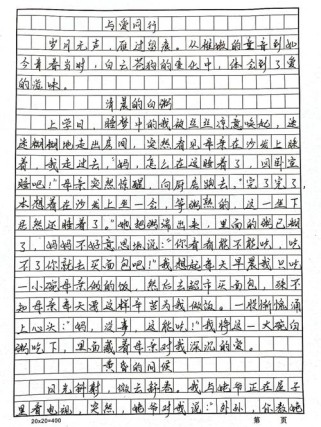 与爱同行
岁月无声，雁过留痕。从稚嫩的童音到如
今青春当时，白云苍狗的变化中，体会到了爱
的滋味。
清晨的白粥
上学日，睡梦中的我被丝丝凉意唤起，迷
迷糊糊地走出房间，突然看见母亲在沙发上睡
着。我走过去，“妈，怎么在这睡着了，回卧室
睡吧！”母亲突然惊醒，向厨房跑去。“完了完了，
本想着在沙发上坐一会，等粥熟的，这一坐下
居然还睡着了。”她把粥端出来，里面的粥已糊
了，妈妈不好意思地说：“你看看能不能吃，吃
不了你就去买面包吧！”我想起每天早晨我只吃
一小碗母亲做的饭，然后去超市买面包，殊不
知母亲每天要这样辛苦为我做饭。一股惭愧涌
上心头：“妈，没事，这能吃！”我将这一大碗白
粥吃下，里面藏着母亲对我深沉的爱。
黄昏的问候
日光斜射，微云斜卷。我与姥爷正在屋子
里看电视，突然，姥爷对我说：“外孙，你教姥
20×20=400
第 页